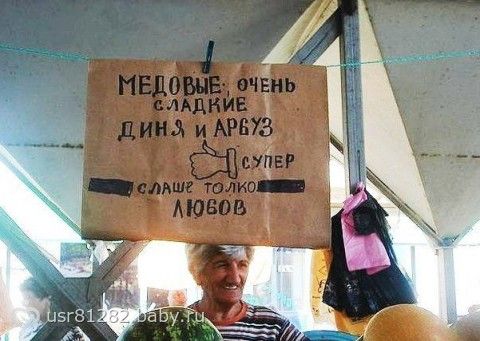 МЕДОВЫЕ, ОЧЕНЬ
СЛАДКИЕ
ДИНЯ И АРБУЗ
СУПЕР
СЛАЩЕ ТОЛКО
ЛЮБОВ
usr81282.baby.ru